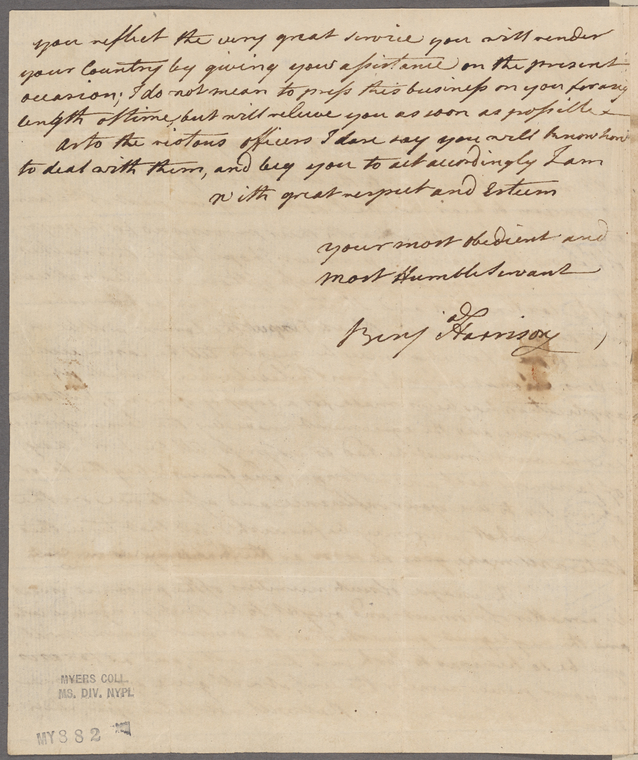 you reflect the very great service you will render
your Country by giving your assistance on the present
occasion; I do not mean to press this business on you for any
length of time, but will relieve you as soon as possible
as to the riotous officers I dare say you will know how
to deal with them, and beg you to act accordingly I am
with great respect and Esteem
your most obedient and
most Humble Servant
Benj Harrison
MYERS COLL.
MS. DIV. NYPL
MY 882